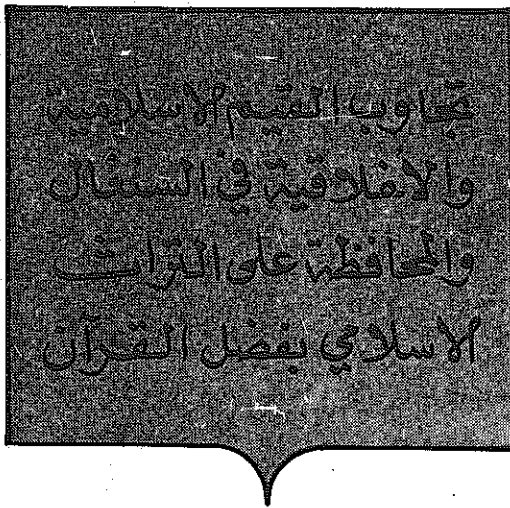 تجاوب القيم الاسلامية
والأخلاقية في السنغال
والمحافظة على التراث
الاسلامي بفضل القرآن